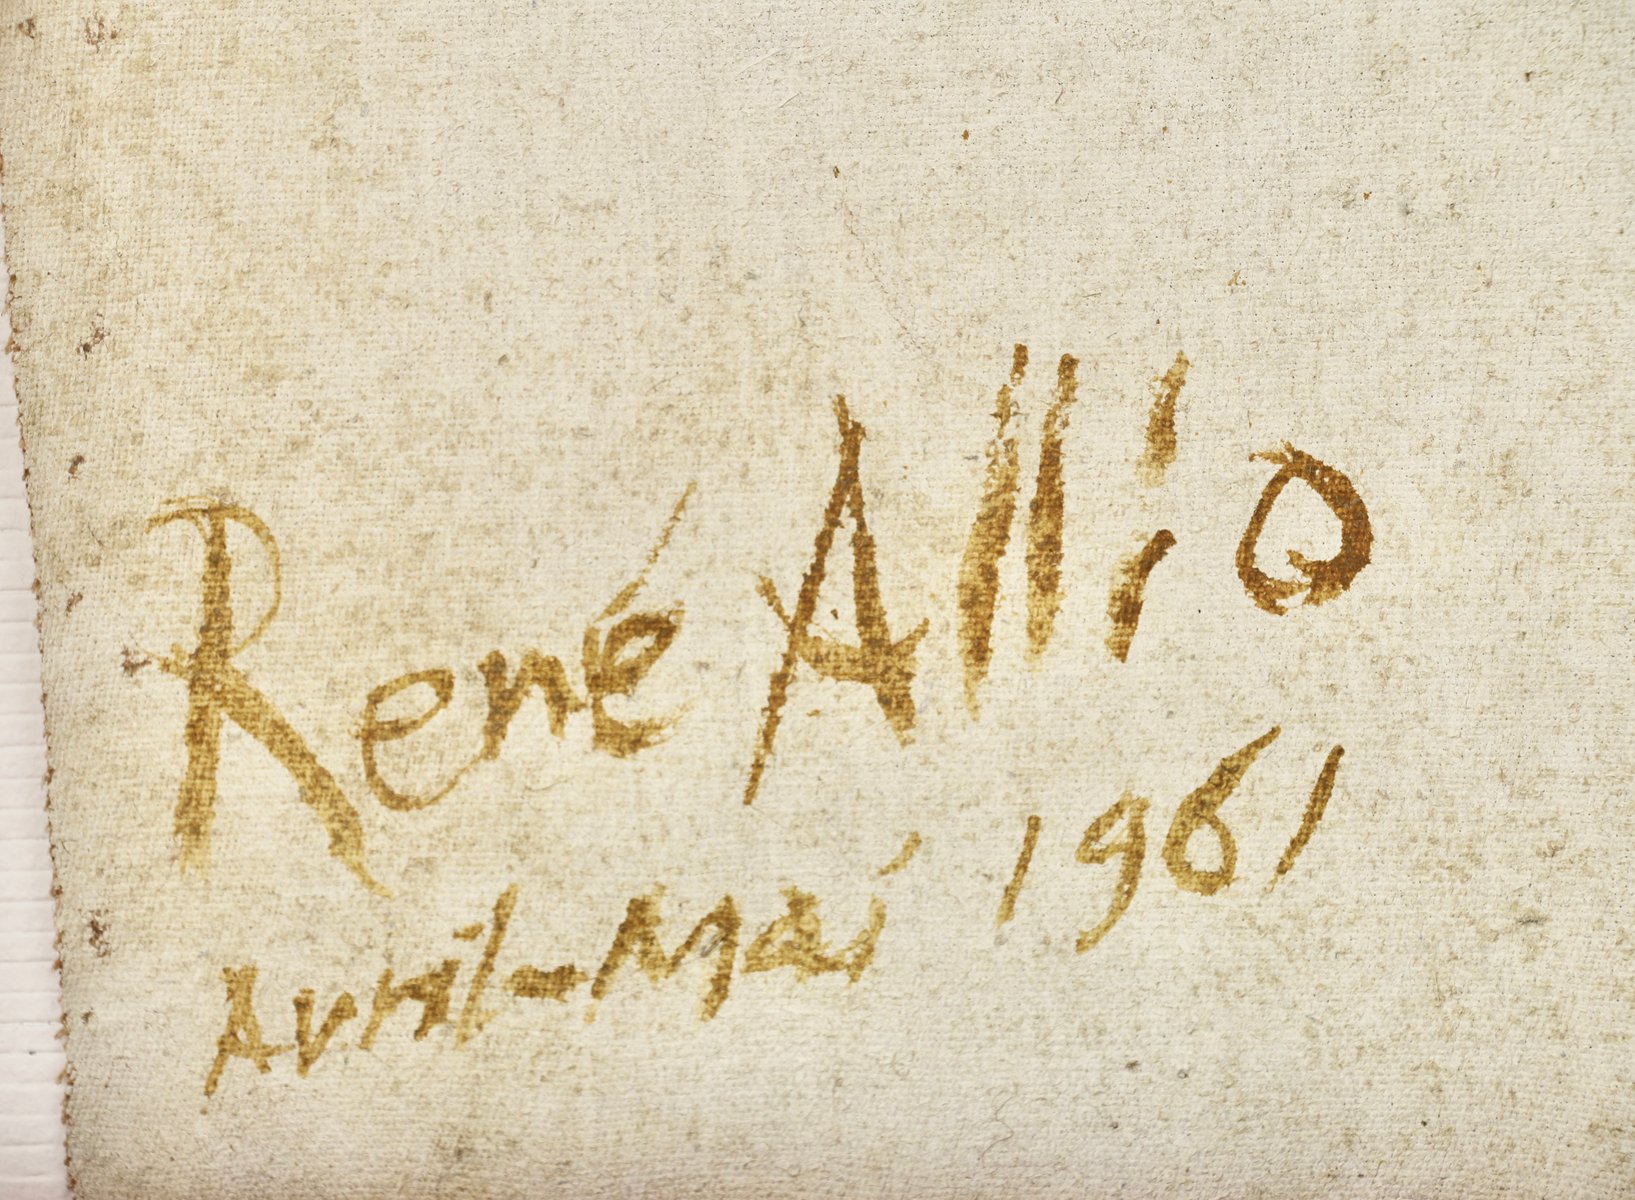 René Allio
Avril-Mai 1961